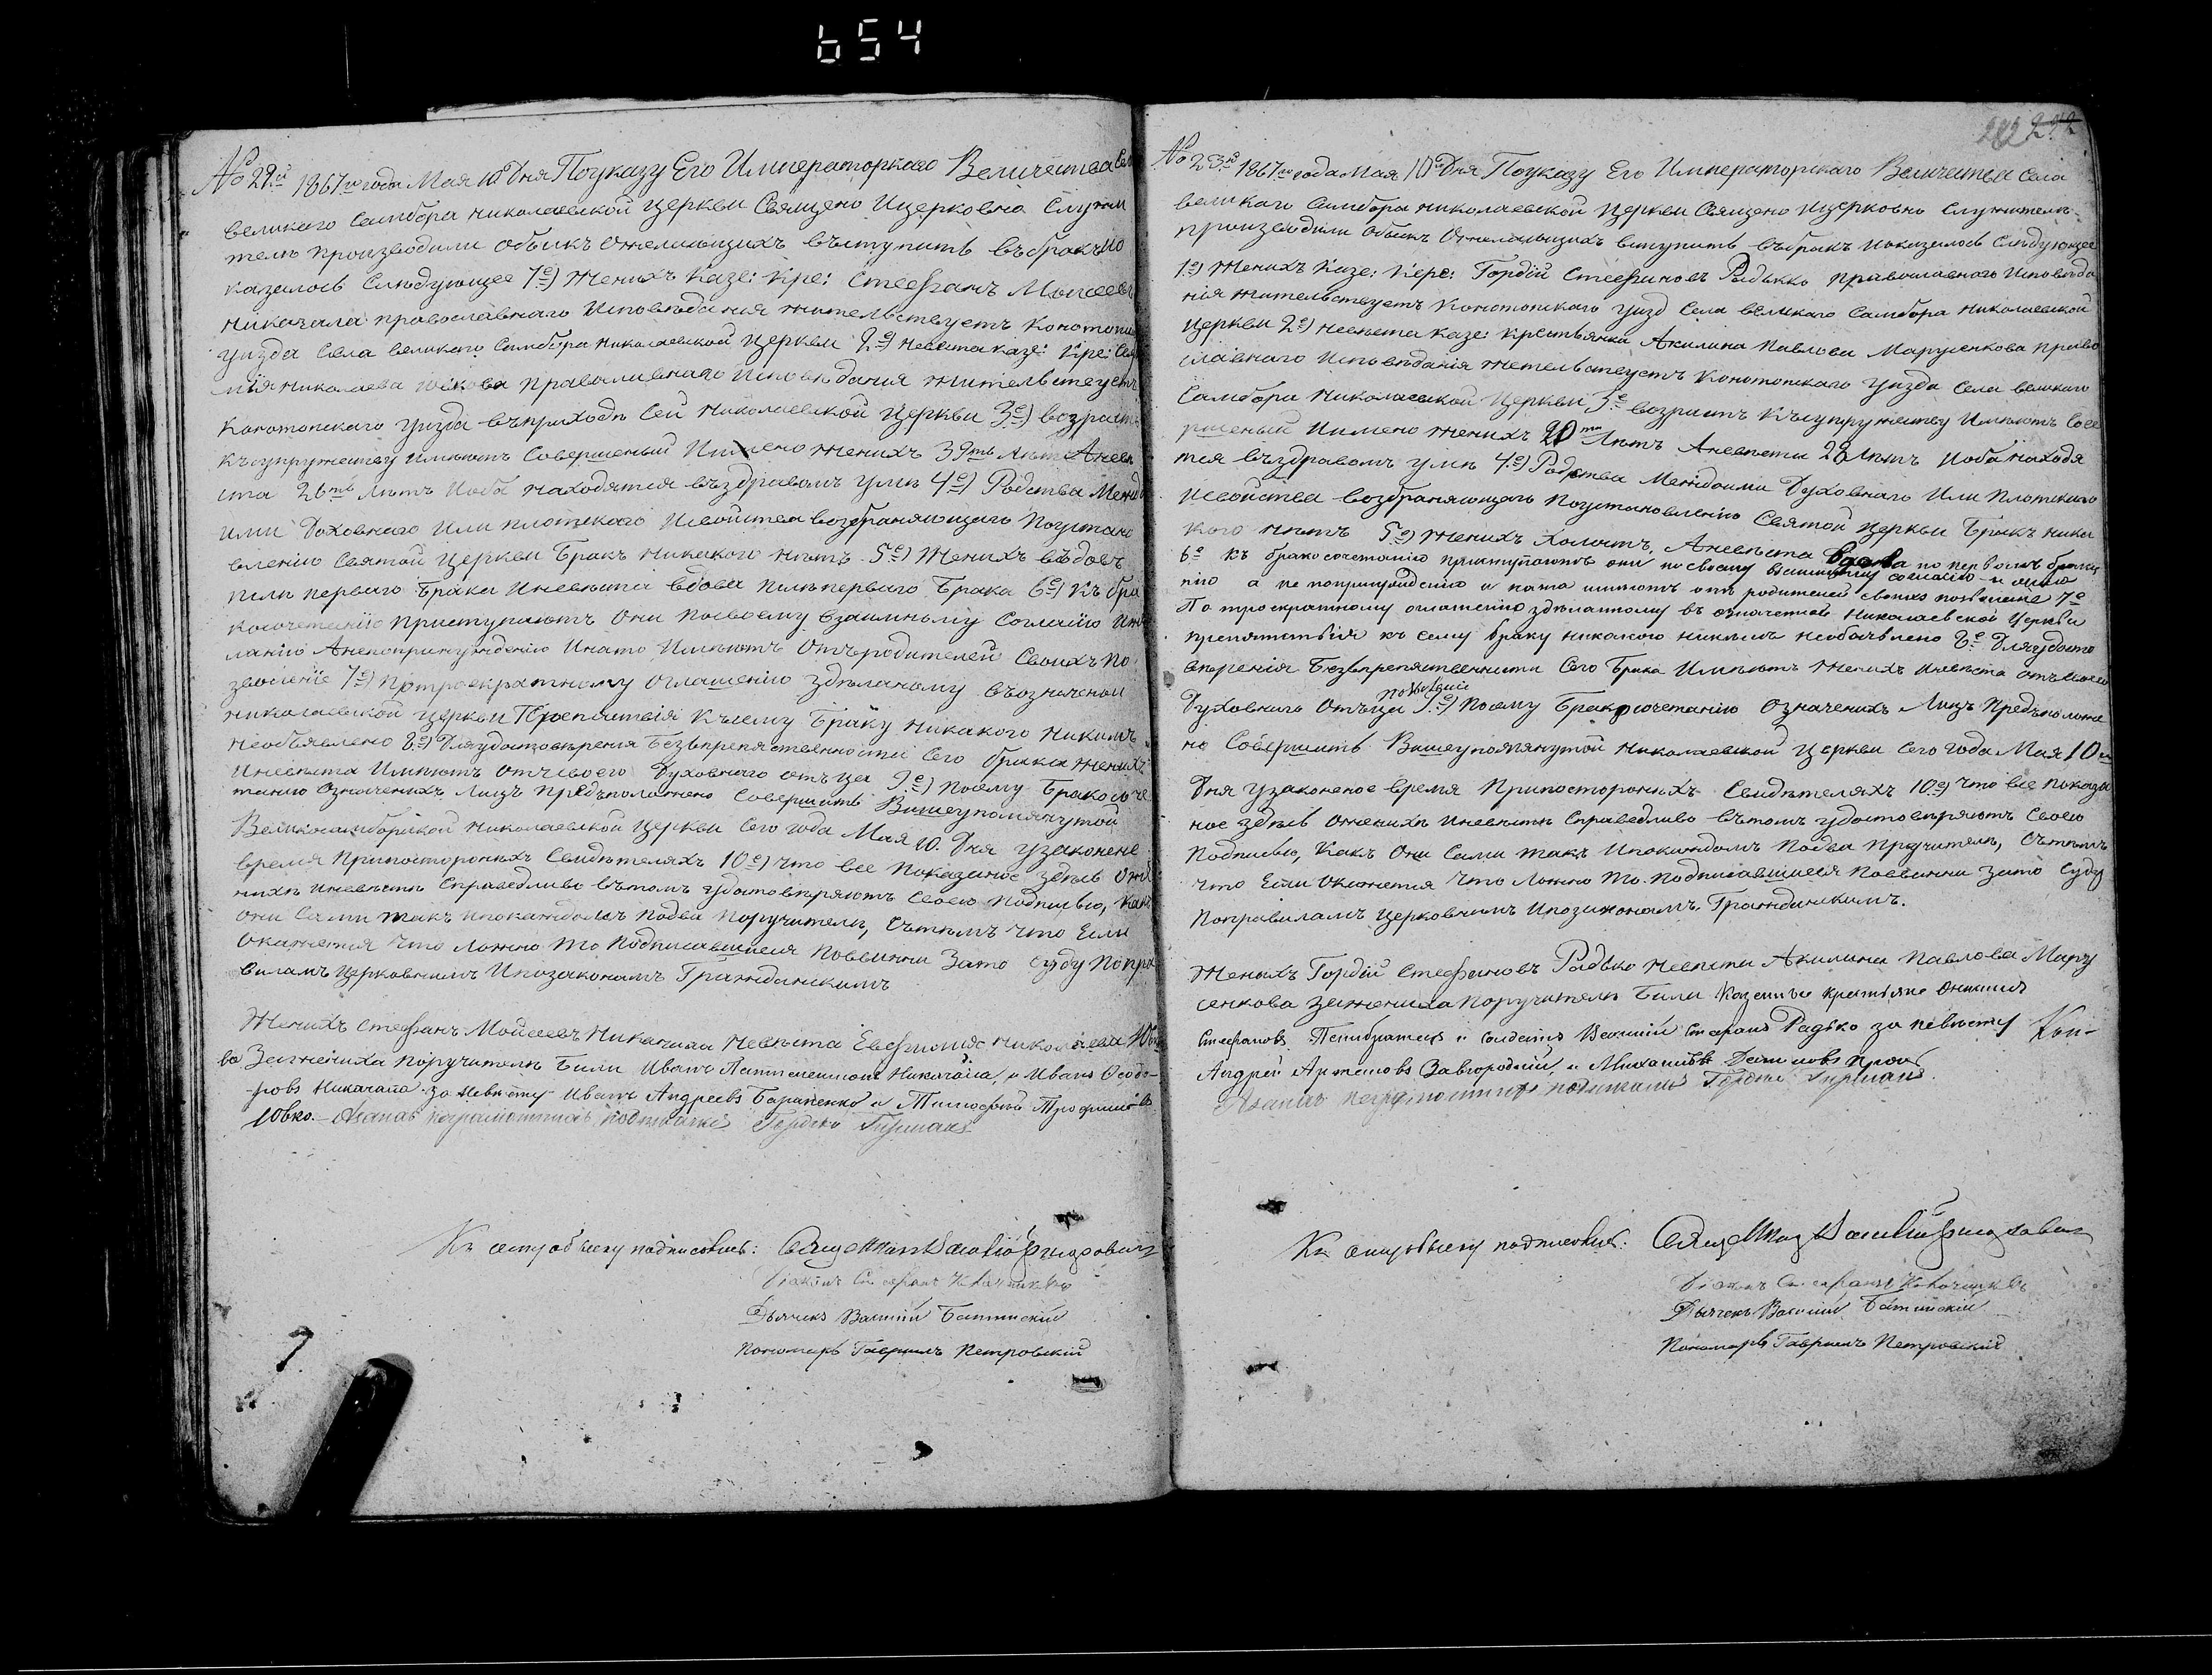 654
No 22й 1867го года Мая 10 Дня Поуказу Его Императоркаго Величества Села
великого Самбора николаевской церкви Священо Ицерковно Служи
тели производили обыск ожелающихъ въступить въбракъ ипо
казалось Следующее 1е) Женихъ Казе: Кре: Стефанъ Моисеевъ
Никачала православнаго Исповѣдания жительствуетъ Конотопск
уизда Села великаго Самбора николаевской церкви 2е) невѣста казе: Кре:
мия Николаева Ювкова православнаго Исповѣдания жительствуетъ
Конотопского уизда въприходѣ Сей Николаевской церкви 3е) возрастъ
Къ супружеству имѣютъ Совершеный Имено женихъ 39ть лѣтъ Аневѣ
ста 26ть лѣтъ Иоба находятся въздравомъ умѣ 4е) Родства Между
ими Духовнаго Или плотскаго Исвойства возбраняющаго Поустано
влению Святой Церкви Бракъ никакого нѣтъ 5е) Женихъ вѣдовъ
послѣ перваго Брака Иневѣста вдова послѣ перваго Брака 6е) Къ бра
косочетанию приступаютъ Они посвоему взаимному Согласию Иже
ланию Анепопринуждению Инато Имѣютъ Отъ родителей Своихъ по
зволение 7е) Потроекратному оглашению здѣланому въозначеной
николаевской церкви Препятствия Къ сему Браку Никакого Никимъ
необъявлено 8е) Для удостовѣрения Безъпрепятственности Сего брака женихъ
Иневѣста Имѣютъ отъ своего Духовнаго отъца 9е) Посему Бракосоче
танию Означеныхъ лицъ предъположено Совершить Вишеупомянутой
Великосамборской николаевской церкви Сего года Мая 10. Дня узаконене
время Припостороныхъ Свидѣтеляхъ 10е) что все показаное здѣсь Оже
нихѣ иневѣсти Справедливо вътомъ удостовѣряютъ Своею подписью, какъ
они Сами такъ ипокаждомъ подва поручители, Сътѣмъ что Если
Окажется что ложно то Подписавшиеся Повинни Зато Суду Попра
виламъ церковнымъ Ипозаконамъ Гражданскимъ
Женихъ Стефанъ Моисеевъ Никачала Невѣста Евфимия Николаева Ювко
ва Зажениха поручители Били Иванъ Пантелеимонъ Никачала, и Иванъ Фeодо-
ровъ Никачала за Невѣсту Иванъ Андреевъ Бараненко и Тимофей Трофимовъ
Ювко. Азанихъ неграмотнихъ подписался Гордѣй Гирманъ
Къ сему обыску подписались: Священникъ Василій Фищровскій
Діаконъ Стефанъ
Дьячекъ Василій Батинскій
Пономарь Гавриилъ Петровскій
282 272
No 23й 1867го года Мая 10го Дня Поуказу Его Императорскаго Величества Села
великаго Самбора николаевской Церкви Священо Ицерковно Служители
производили Обыскъ Ожелающихъ вступить въбракъ Ипоказалось Слѣдующее
1е) Женихъ Казе: Кре: Гордій Стефановъ Радько Православнаго Исповѣда
нія жительствуетъ Конотопскаго уизд Села великаго Самбора николаевской
Церкви 2е) Невѣста Казе: Крестьянка Акилина Павлова Марусенкова Право
славнаго Исповѣданія жительствуетъ Конотопскаго уизда Села великаго
Самбора николаевской Церкви 3е возрастъ Къ супружеству Имѣютъ Сове
ршеный Имено женихъ 20ти Лѣтъ Аневѣста 28 Лѣтъ Иоба находя
тся въздравомъ умѣ 4е) Родства Междоими Духовнаго Или плотскаго
Исвойства возбраняющаго Поустановленію Святой Церкви Бракъ ника
кого нѣтъ 5е) женихъ холостъ, Аневѣста вдова по первомъ бракѣ
6е къ бракосочетанію приступаютъ они по своему взаимному согласію и жела
нію а не попринужденію и нато имѣютъ отъ родителей своихъ позволеніе 7е
По троекратному оглашенію здѣланному въ означеной Николаевской Церкви
препятствія къ сему браку никакого никимъ необъявлено 8е Для удосто
вѣренія Безъпрепятственности Сего Брака Имѣютъ женихъ Иневѣста отъ своего
Духовнаго Отъца позволеніе 9е) Посему Бракосочетанію Означеныхъ Лицъ Предъположе
но Совершить Вишеупомянутой Николаевской Церкви Сего года Мая 10го
Дня узаконеное время Припостороныхъ Свидѣтеляхъ 10е) что все показа
ное здѣсь Оженихѣ Иневѣсти Справедливо вътомъ удостовѣряютъ Своею
Подписью, Какъ Они Сами такъ Ипокаждомъ Подва Поручители, Сътѣмъ
что Если Окажется что Ложно то. подписавшиеся Повинни Зато Суду
Поправиламъ Церковнымъ Ипозаконамъ. Гражданскимъ.
Женихъ Гордій Стефановъ Радько Невѣста Акилина Павлова Мару
сенкова Зажениха Поручители Били Казенные крестьяне Онисимъ
Стефановъ и солдатъ Василій Стефановъ Радько за невѣсту
Андрей Артемовъ Завгородній, и Михаилъ
Азанихъ неграмотнихъ подписался Гордѣй Гирманъ
Къ сему обыску подписались: Священникъ Василій Фищровскій
Діаконъ Стефанъ
Дьячекъ Василій Батинскій
Пономарь Гавриилъ Петровскій